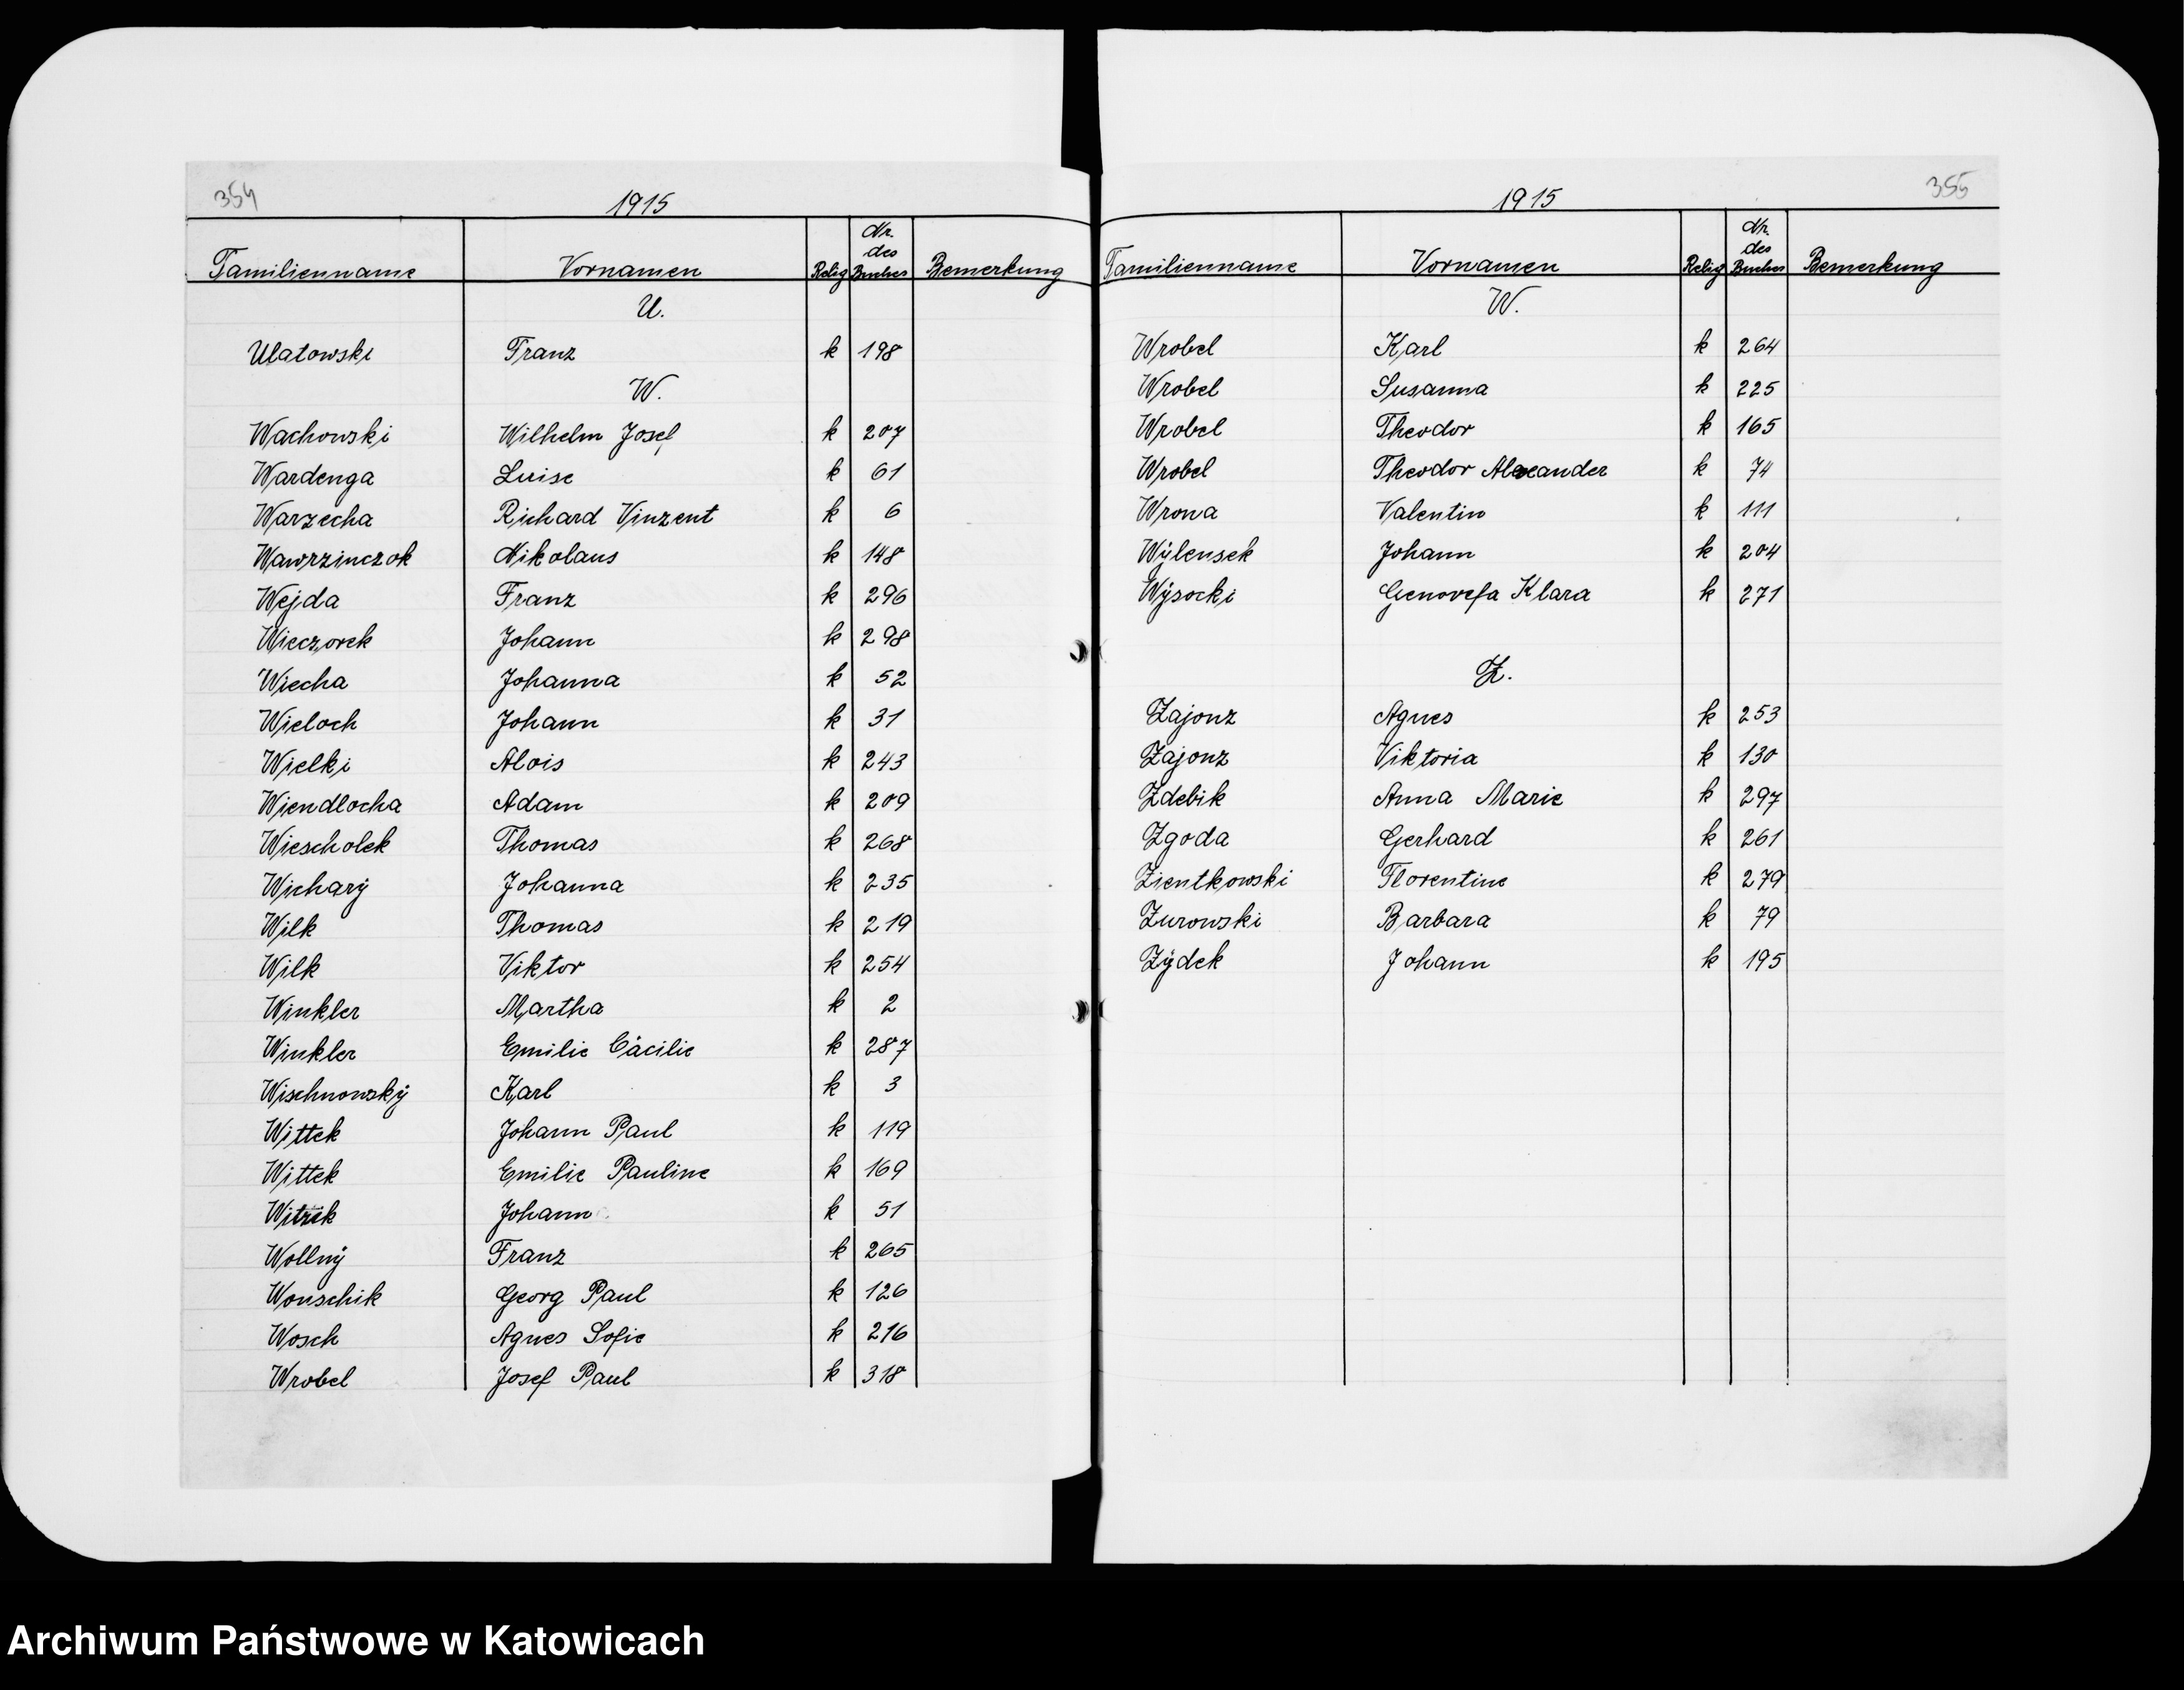 354
1915
Familienname Vornamen Relig Nr. des Buches Bemerkung
U.
Ulatowski Franz k 198
W.
Wachowski Wilhelm Josef k 207
Wardenga Luise k 61
Warzecha Richard Vinzent k 6
Wawrzinczok Nikolaus k 148
Wejda Franz k 296
Wieczorek Johann k 298
Wiecha Johanna k 52
Wieloch Johann k 31
Wielki Alois k 243
Wiendlocha Adam k 209
Wiescholek Thomas k 268
Wicharÿ Johanna k 235
Wilk Thomas k 219
Wilk Viktor k 254
Winkler Martha k 2
Winkler Emilie Cäcilie k 287
Wischnowskÿ Karl k 3
Wittek Johann Paul k 119
Wittek Emilie Pauline k 169
Witzik Johann k 51
Wollnÿ Franz k 265
Wonschik Georg Paul k 126
Wosch Agnes Sofie k 216
Wrobel Josef Paul k 318
355
1915
Familienname Vornamen Relig Nr. des Buches Bemerkung
W.
Wrobel Karl k 264
Wrobel Susanna k 225
Wrobel Theodor k 165
Wrobel Theodor Alexander k 74
Wrona Valentin k 111
Wÿlensek Johann k 204
Wÿsocki Genovefa Klara k 271
Z.
Zajonz Agnes k 253
Zajonz Viktoria k 130
Zdebik Anna Marie k 297
Zgoda Gerhard k 261
Zientkowski Florentine k 279
Zurowski Barbara k 79
Zÿdek Johann k 195
Archiwum Państwowe w Katowicach